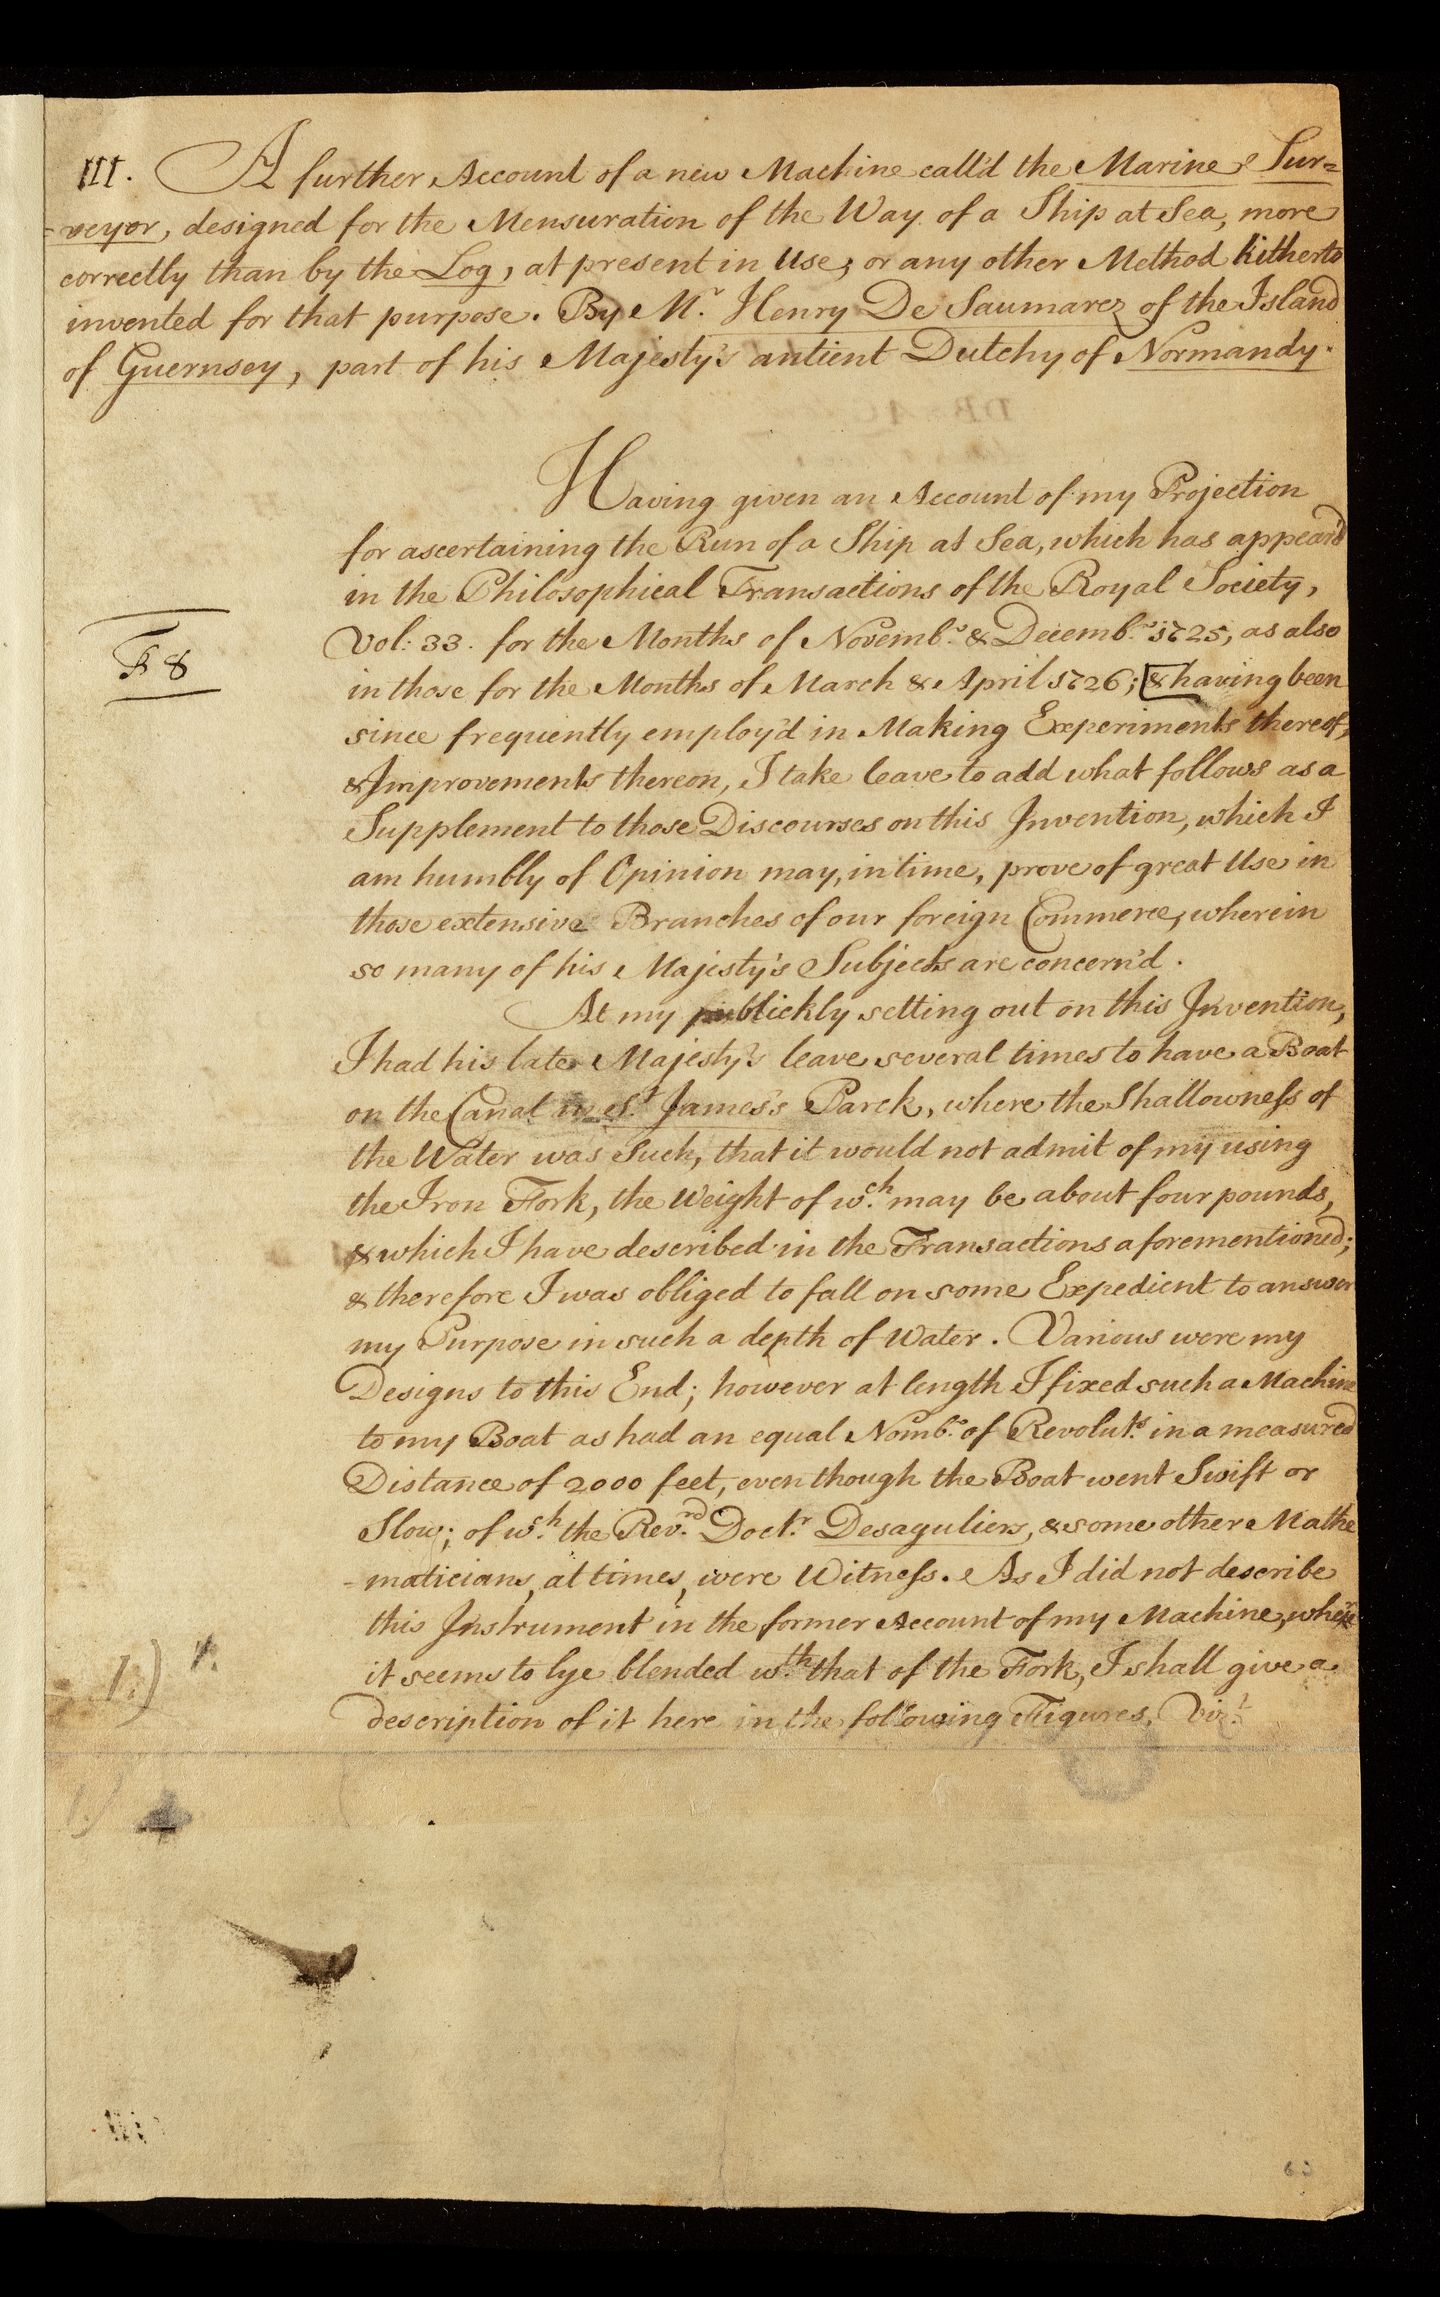 III. A further Account of a new Machine call'd the Marine Sur=
=veyor, designed for the Mensuration of the Way of a Ship at Sea, more
correctly than by the Log, at present in Use, or any other Method hitherto
invented for that purpose. By Mr. Henry De Saumarez of the Island
of Guernsey, part of his Majesty's antient Dutchy of Normandy.
Having given an Account of my Projection
for ascertaining the Run of a Ship at Sea, which has appear'd
in the Philosophical Transactions of the Royal Society,
Vol: 33. for the Months of Novembr. & Decembr. 1725, as also
F 8
in those for the Months of March & April 1726; [& having been
since frequently employ'd in Making Experiments thereof,
& Improvements thereon, I take leave to add what follows as a
Supplement to those Discourses on this Invention, which I
am humbly of Opinion may, in time, prove of great Use in
those extensive Branches of our foreign Commerce, wherein
so many of his Majesty's Subjects are concern'd.
At my publickly setting out on this Invention,
I had his late Majesty's leave several times to have a Boat
on the Canal in St. James's Parck, where the Shallowness of
the Water was Such, that it would not admit of my using
the Iron Fork, the Weight of wch. may be about four pounds,
& which I have described in the Transactions aforementioned;
& therefore I was obliged to fall on some Expedient to answer
my Purpose in such a depth of Water. Various were my
Designs to this End; however at length I fixed such a Machine
to my Boat as had an equal Nombr. of Revoluts. in a measured
Distance of 2000 feet, even though the Boat went Swift or
Slow; of wch. the Revrd. Doctr. Desaguliers, & some other Mathe
=maticians, at times, were Witness. As I did not describe
this Instrument in the former Account of my Machine, where
it seems to lye blended wth. that of the Fork, I shall give a
1.)
description of it here in the following Figures, Vizt.
1.)